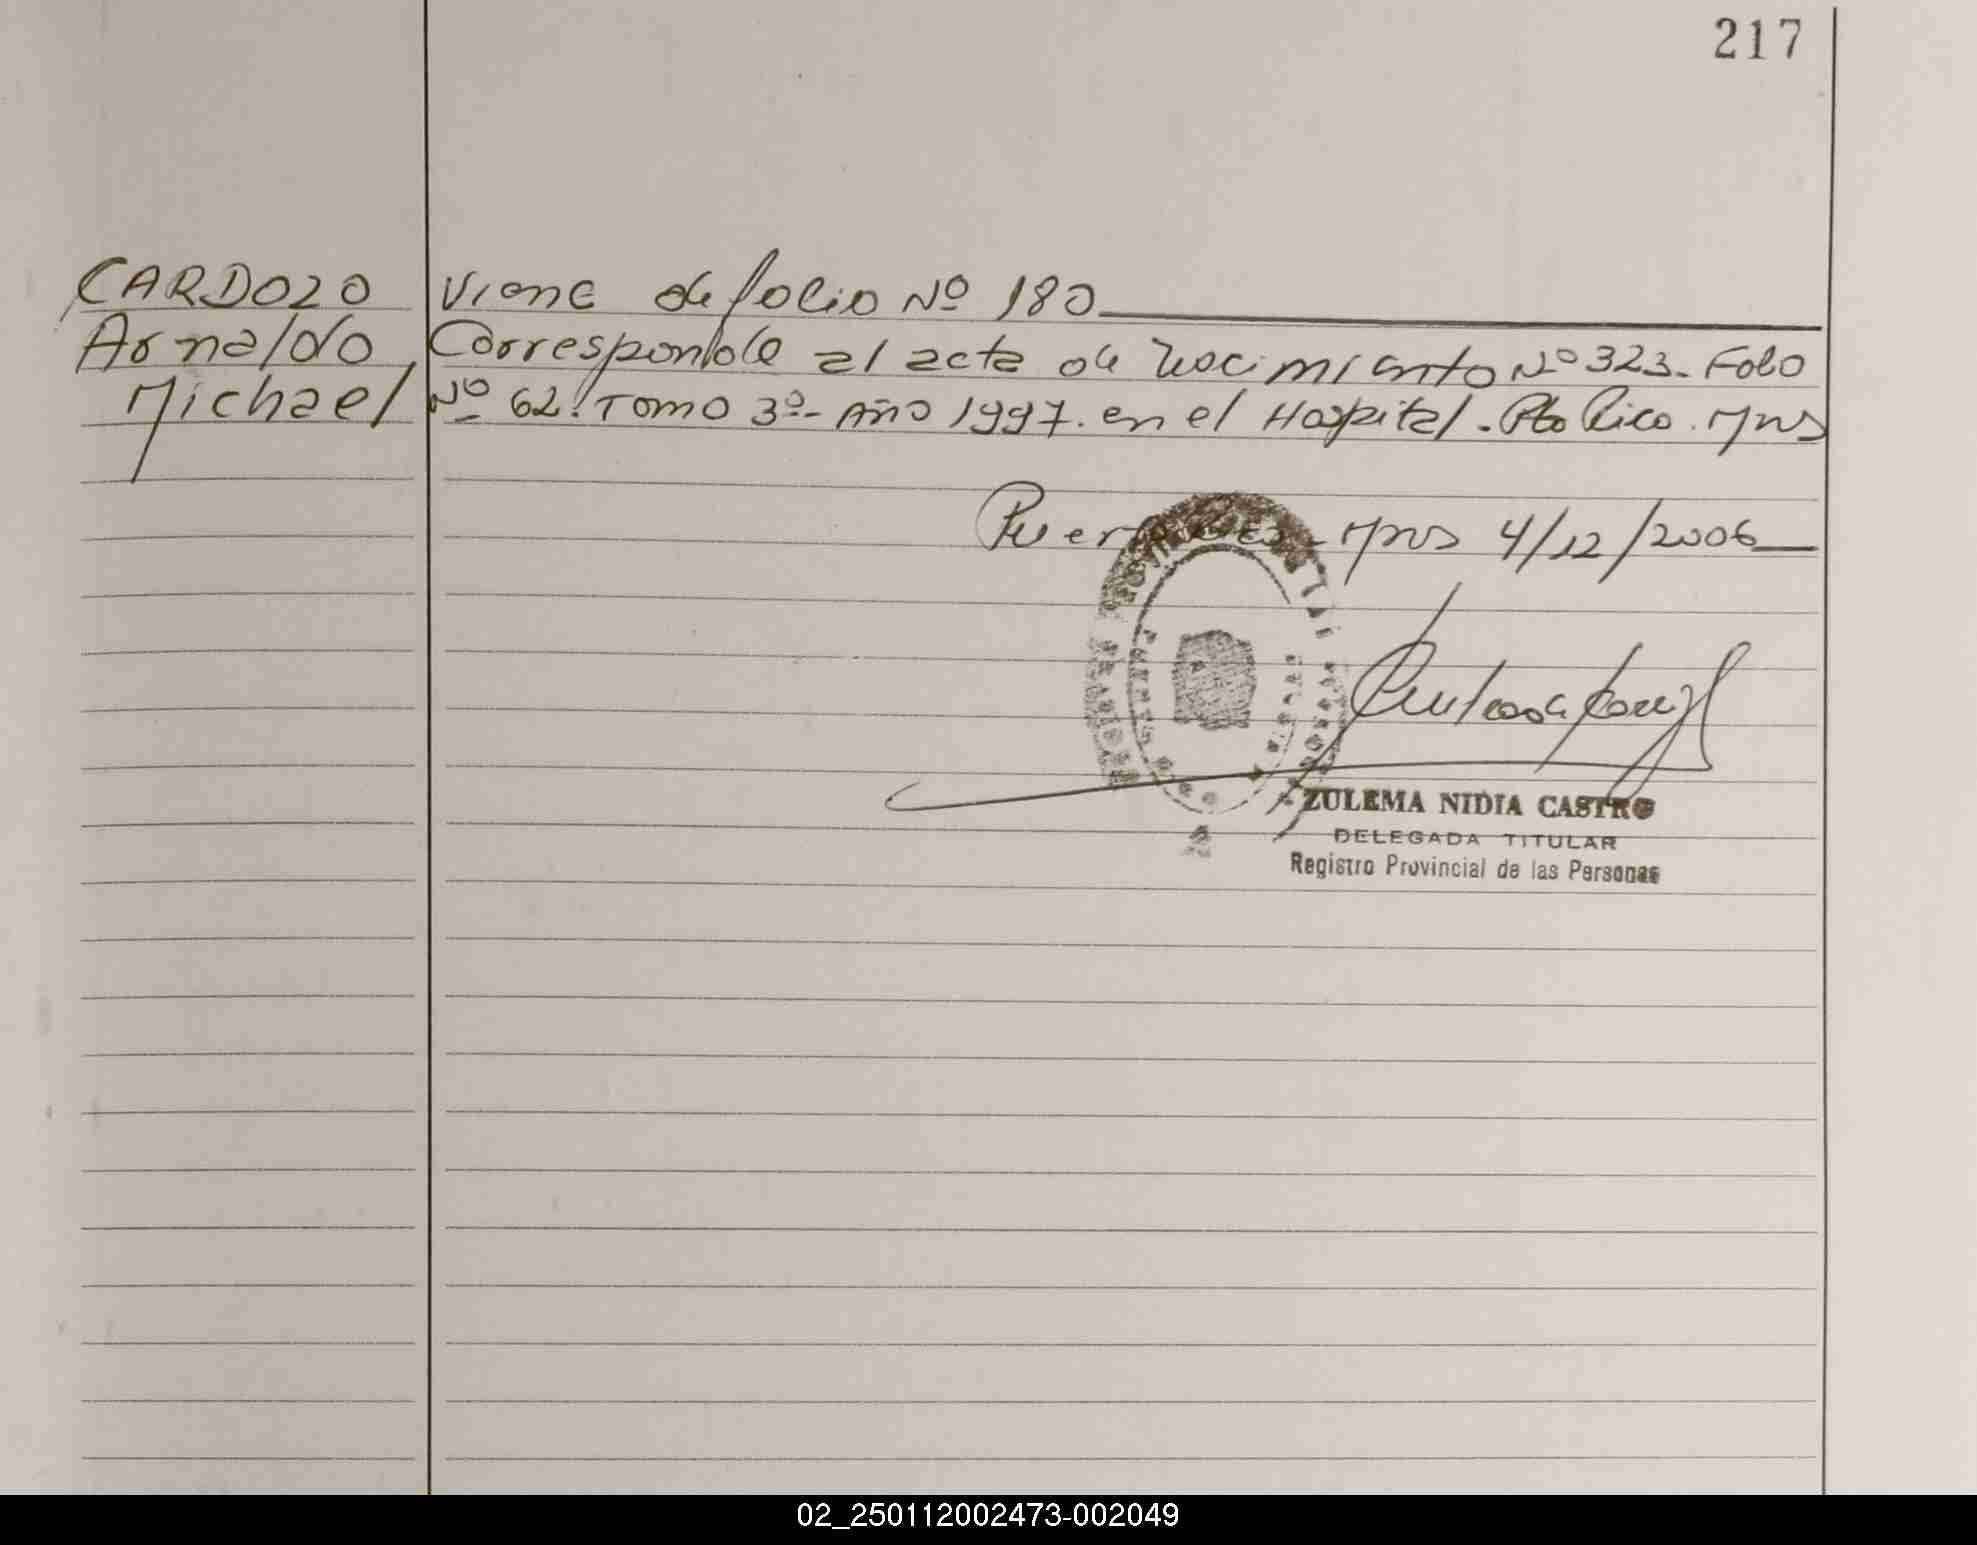 217
CARDOZO
Arnaldo
Michael
Viene de folio Nº 180
Corresponde al acta de Nacimiento Nº 323- Folio
Nº 62. Tomo 3º- Año 1997. en el Hospital. Pto Rico. Mns
Puerto Mns 4/12/2006
ZULEMA NIDIA CASTRO
DELEGADA TITULAR
Registro Provincial de las Personas
02_250112002473-002049